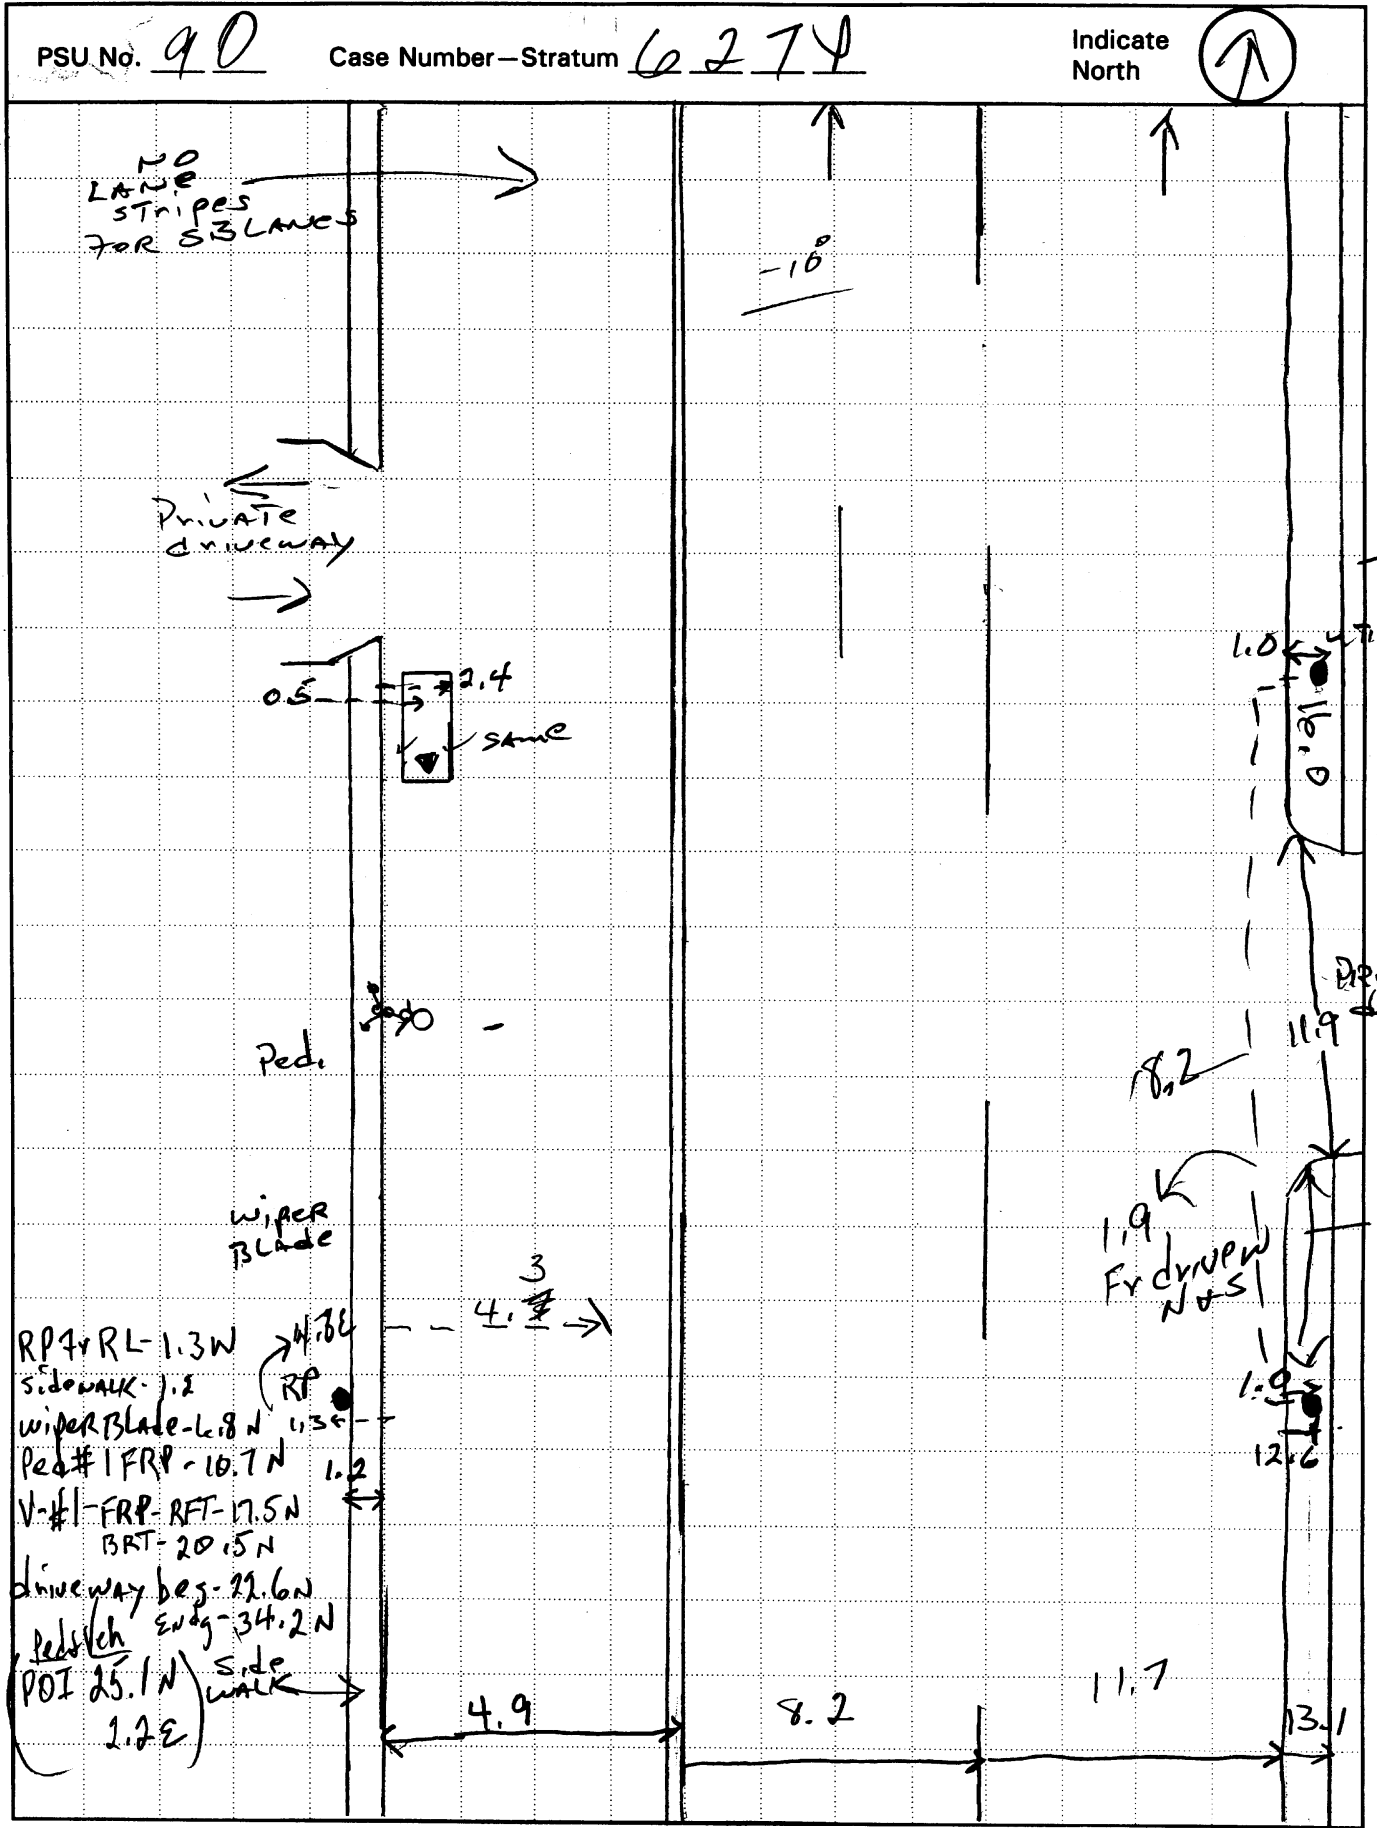 PSU No. 90 Case Number—Stratum 627Y Indicate North
NO
LANE
STripes
FOR SB LANES
-10°
Private
driveway
1.0
0.5
2.4
same
12.0
Ped.
11.9
8.2
wiper
Blade
1.9
Fr drivew
N & S
3
4.
RP Fr RL- 1.3W
4.3E
sidewalk- 1.2
RP
wiper Blade-6.8 N
1.3E
1.0
Ped#1 FRP - 10.7 N
1.2
12.6
V-#1-FRP-RFT-17.5N
BRT- 20.5N
driveway beg- 22.6N
Endg- 34.2N
Ped&Veh
POI 25.1N
2.2E
side
walk
4.9
8.2
11.7
13.1